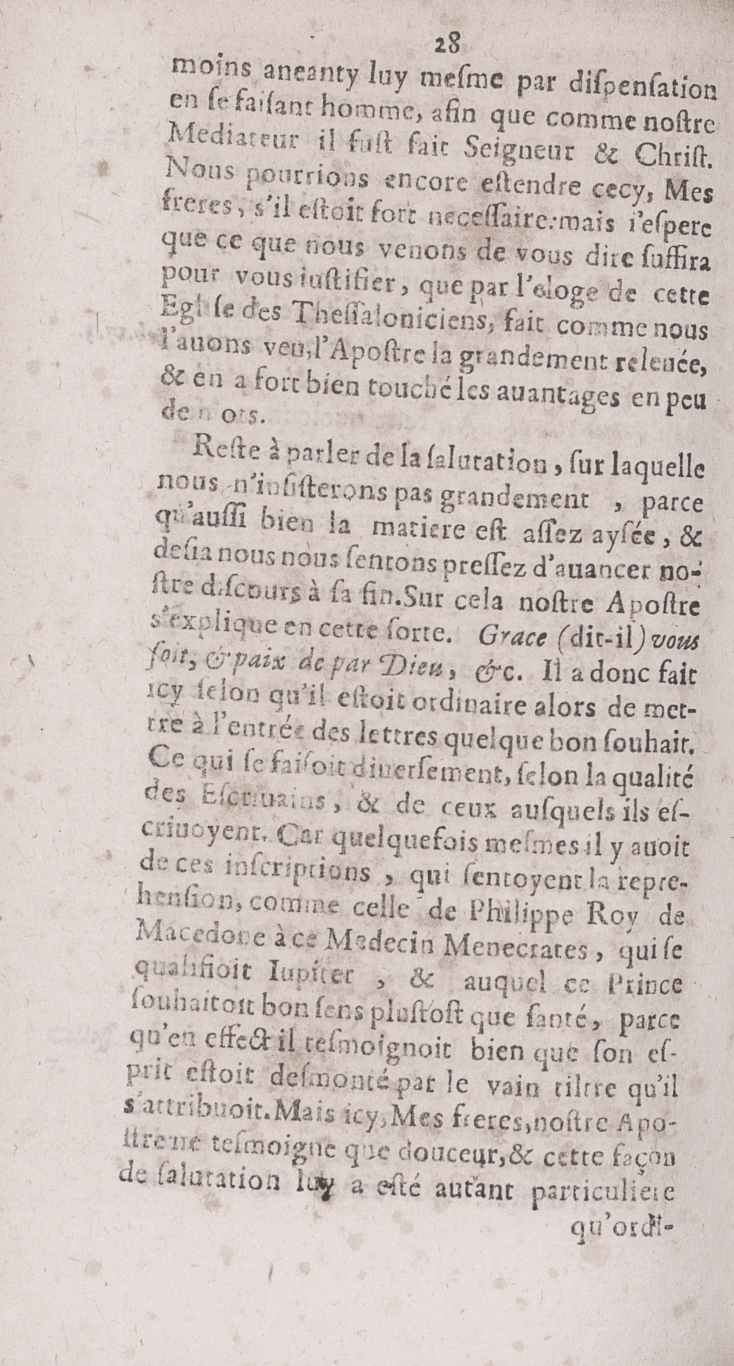 28
moins aneanty luy meſme par diſpenſation
en ſe faiſant homme, afin que comme noſtre
Mediateur il fuſt fait Seigneur & Chriſt.
Nous pourrions encore eſtendre cecy, Mes
freres, s'il eſtoit fort neceſſaire: mais i'eſpere
que ce que nous venons de vous dire ſuffira
pour vous iuſtifier, que par l'eloge de cette
Egliſe des Theſſaloniciens, fait comme nous
l'auons veu, l'Apoſtre la grandement releuée,
& en a fort bien touché les auantages en peu
de mots.
Reſte à parler de la ſalutation, ſur laquelle
nous n'inſiſterons pas grandement , parce
qu'auſſi bien la matiere eſt aſſez ayſée, &
deſia nous nous ſentons preſſez d'auancer no-
ſtre diſcours à ſa fin. Sur cela noſtre Apoſtre
s'explique en cette ſorte. Grace (dit-il) vous
ſoit, & paix de par Dieu, &c. Il a donc fait
icy ſelon qu'il eſtoit ordinaire alors de met-
tre à l'entrée des lettres quelque bon ſouhait.
Ce qui ſe faiſoit diuerſement, ſelon la qualité
des Eſcriuains, & de ceux auſquels ils eſ-
criuoyent. Car quelquefois meſmes il y auoit
de ces inſcriptions , qui ſentoyent la repre-
henſion, comme celle de Philippe Roy de
Macedone à ce Medecin Menecrates, qui ſe
qualifioit Iupiter , & auquel ce Prince
ſouhaitoit bon ſens pluſtoſt que ſanté, parce
qu'en effect il teſmoignoit bien que ſon eſ-
prit eſtoit deſmonté par le vain tiltre qu'il
s'attribuoit. Mais icy, Mes freres, noſtre Apo-
ſtre ne teſmoigne que douceur, & cette façon
de ſalutation luy a eſté autant particuliere
qu'ordi-